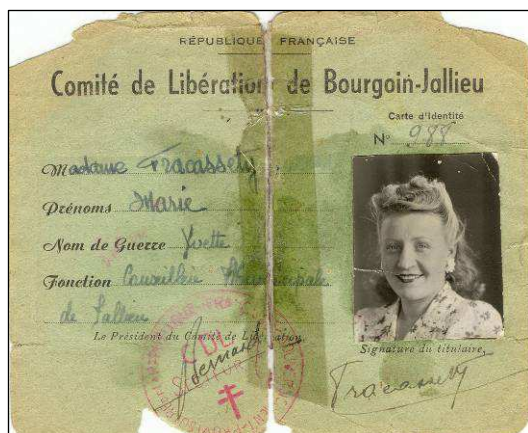 RÉPUBLIQUE FRANÇAISE
Comité de Libération de Bourgoin-Jallieu
Carte d'identité
N° 988
Madame Fracassety
Prénoms Marie
Nom de Guerre Yvette
Fonction Conseillère Municipale
de Jallieu
Le Président du Comité de Libération,
Signature du titulaire,
CDL
Fracassety